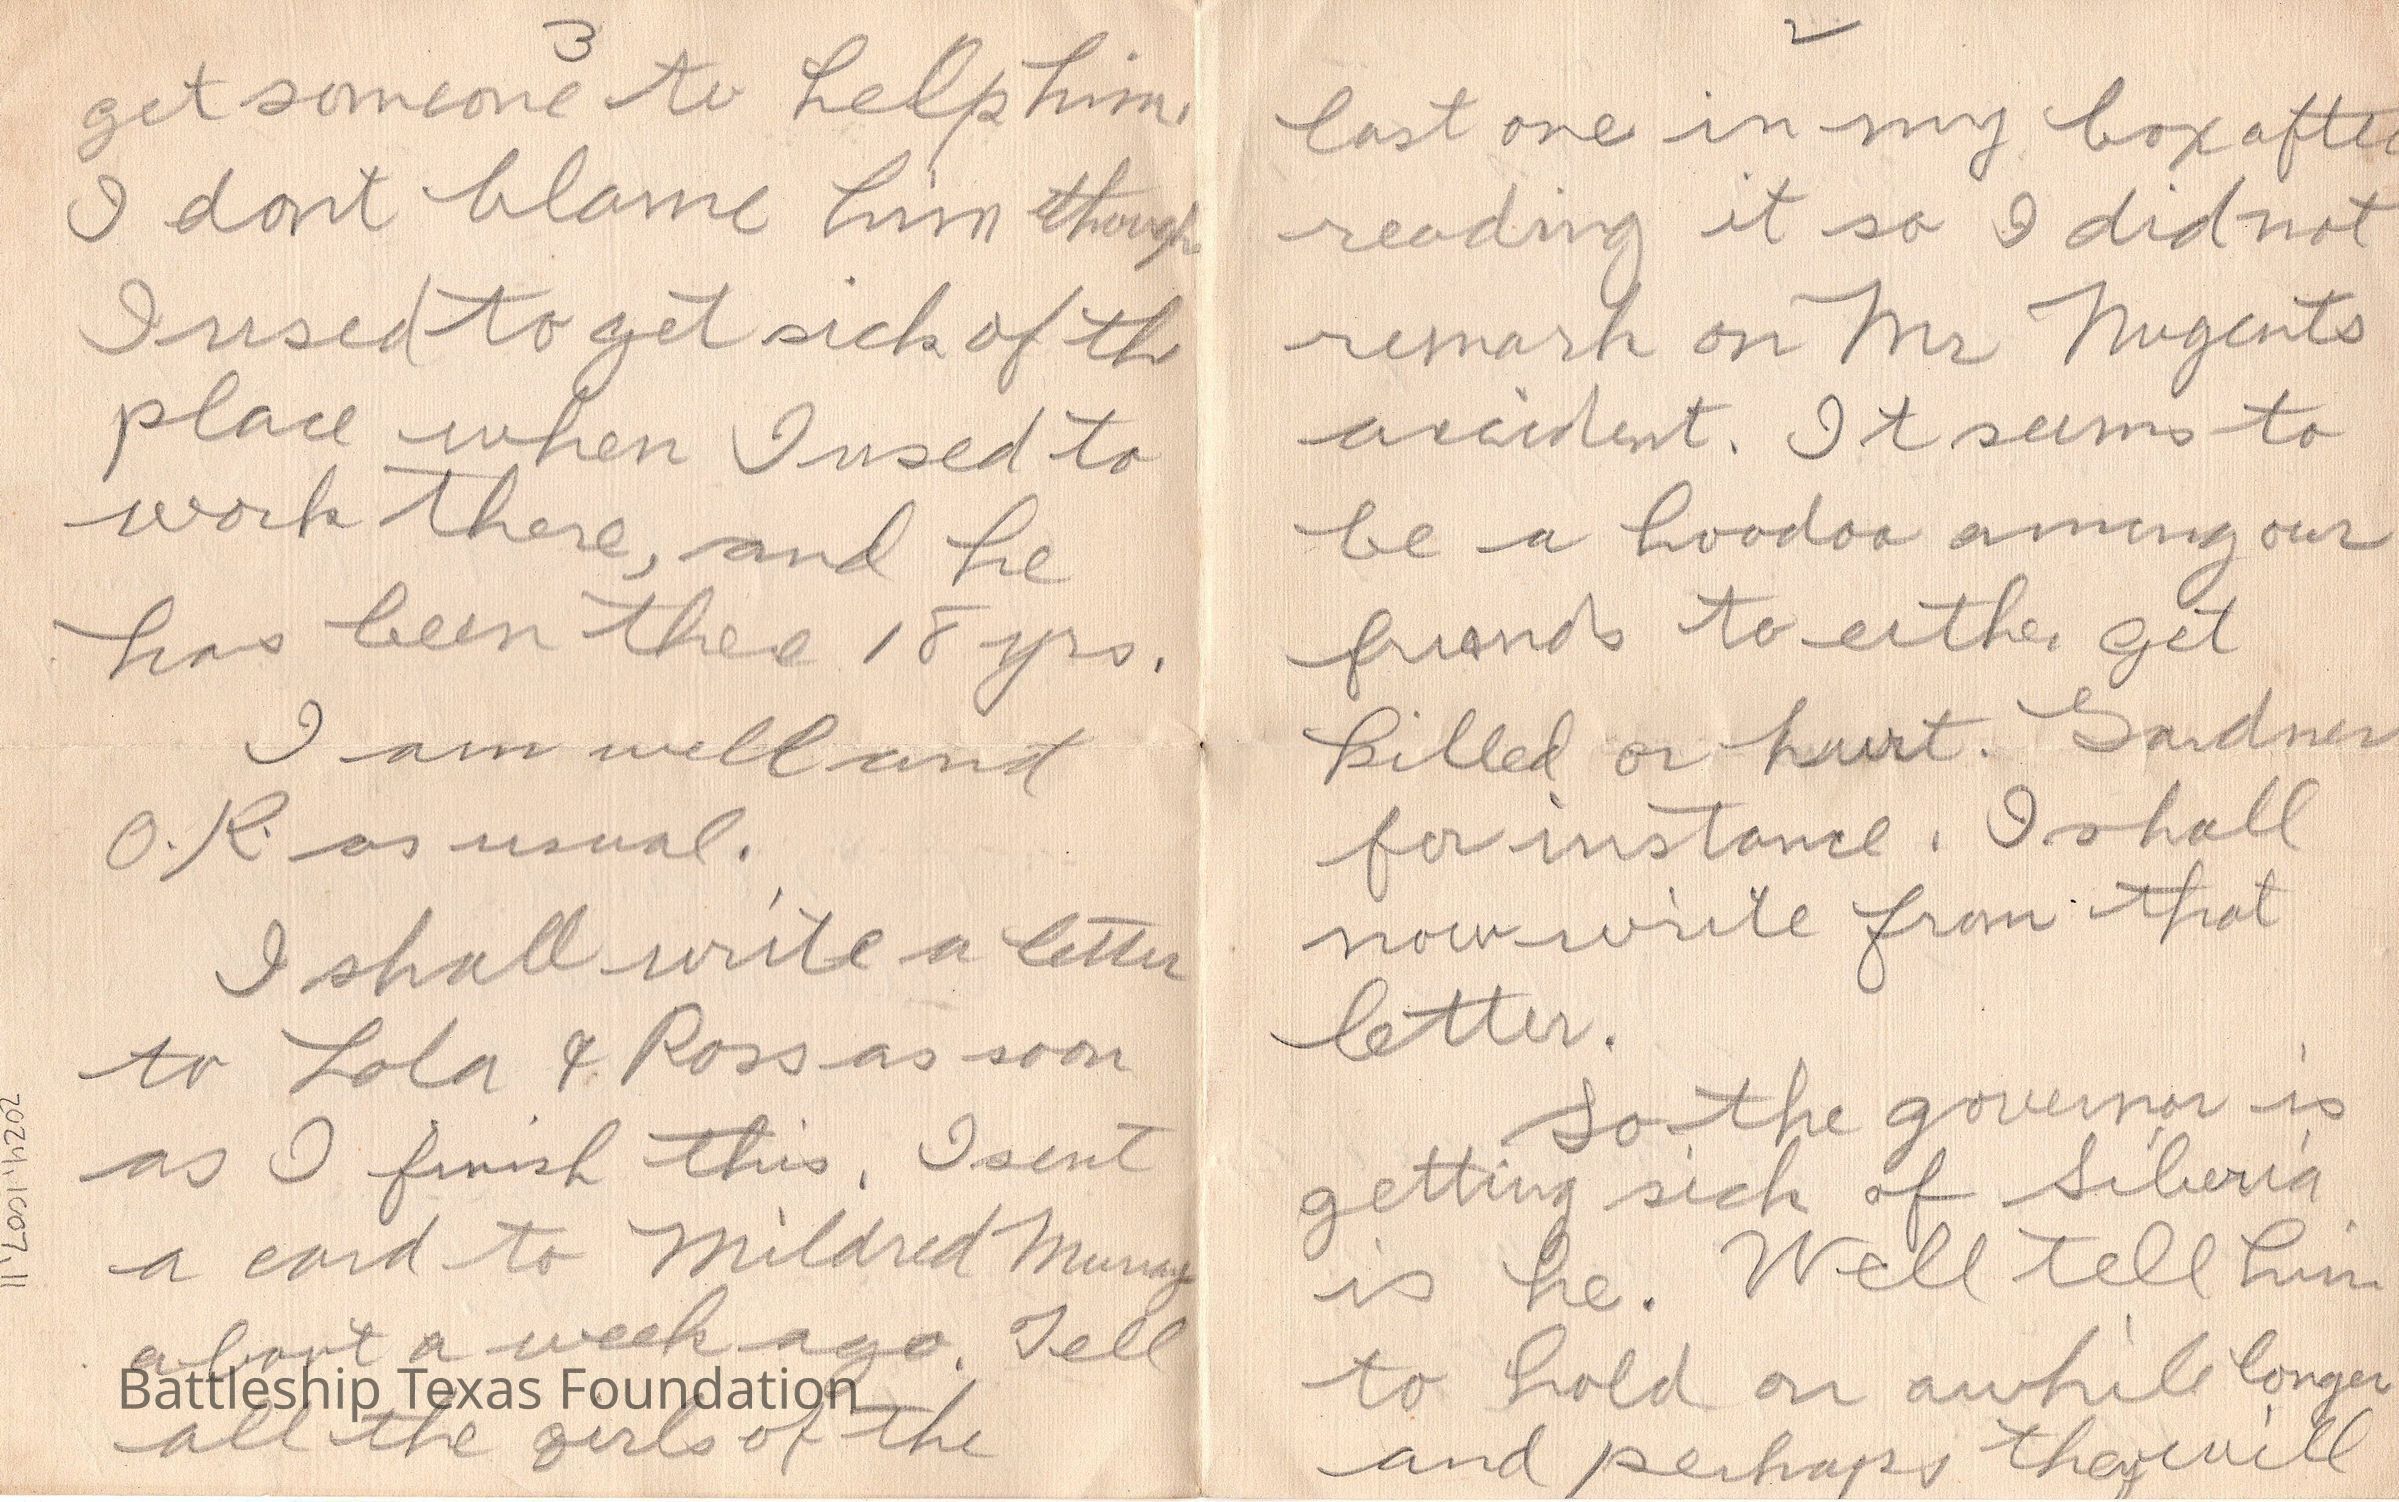 3
get someone to help him.
I dont blame him though
I used to get sick of th
place when I used to
work there, and he
has been thee 18 yrs.
I am well and
O.K. as usual.
I shall write a letter
to Lola & Ross as soon
as I finish this. I sent
a card to Mildred Murray
about a week ago. Tell
all the girls of the
2
last one in my box after
reading it so I did not
remark on Mr Nugents
accident. It seems to
be a hoodoo among our
friends to either get
killed or hurt. Gardner
for instance. I shall
now write from that
letter.
So the governor is
getting sick of Siberia
is he. Well tell him
to hold on awhile longer
and perhaps they will
2024.1.507.11
Battleship Texas Foundation